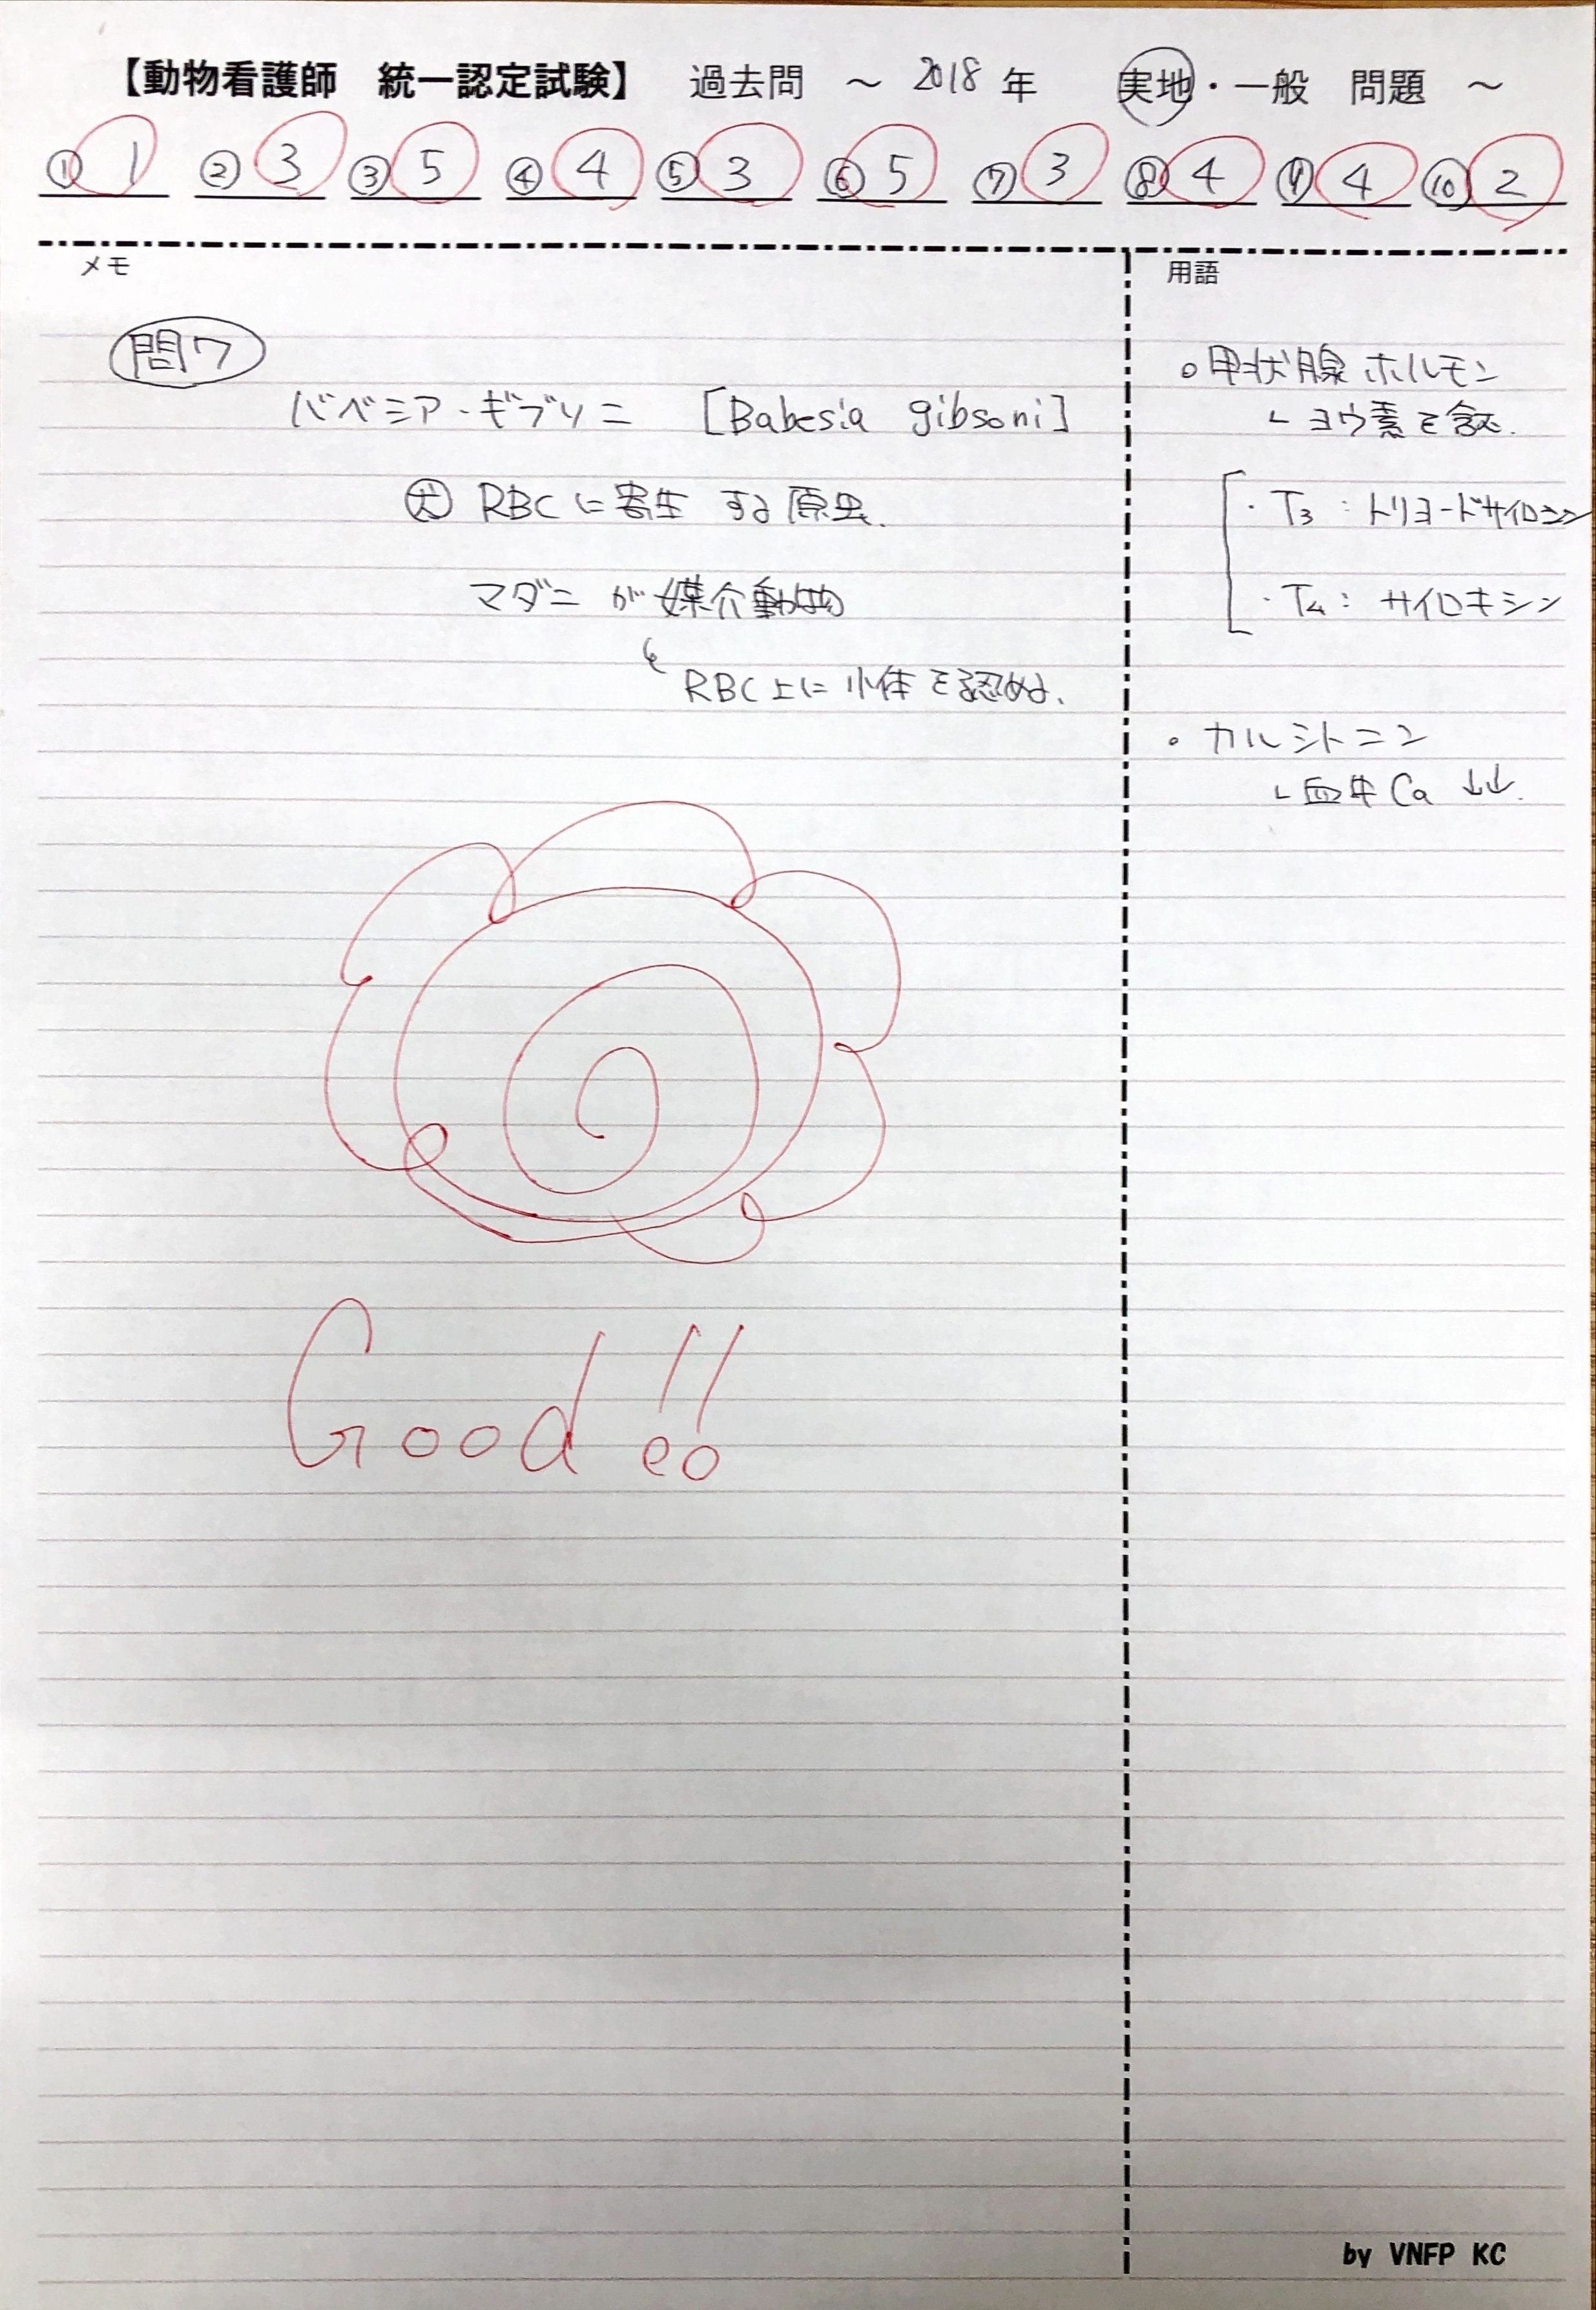 【動物看護師 統一認定試験】 過去問 ～ 2018 年 実地・一般 問題 ～
① 1 ② 3 ③ 5 ④ 4 ⑤ 3 ⑥ 5 ⑦ 3 ⑧ 4 ⑨ 4 ⑩ 2
メモ
問7
バベシア・ギブソニ [Babesia gibsoni]
犬 RBCに寄生する原虫.
マダニが媒介動物
RBC上に小体を認める.
Good!!
用語
甲状腺ホルモン
ヨウ素を含む.
・T3：トリヨードサイロニン
・T4：サイロキシン
カルシトニン
血中Ca ↓↓.
by VNFP KC